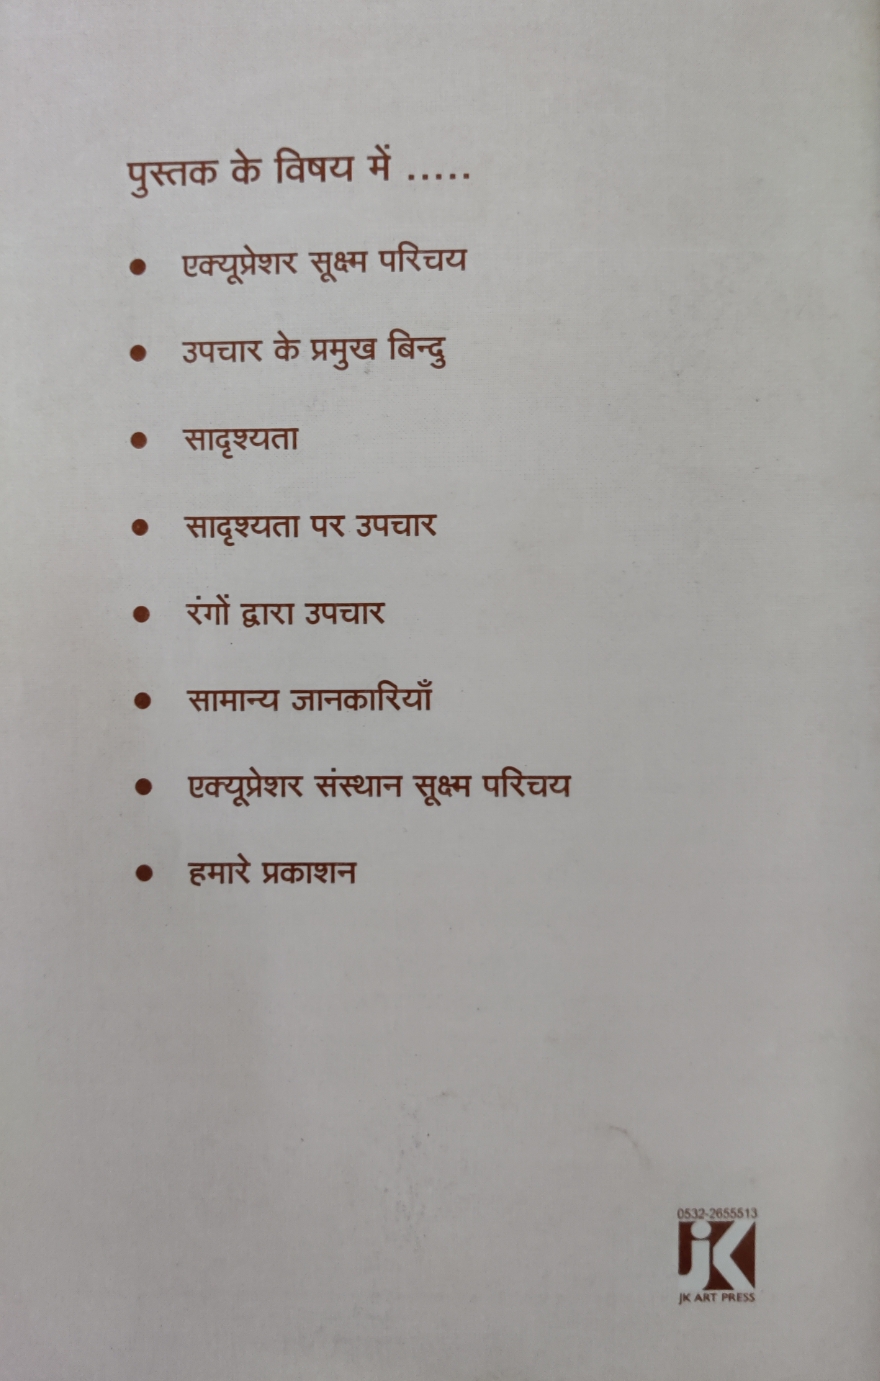 पुस्तक के विषय में .....
• एक्यूप्रेशर सूक्ष्म परिचय
• उपचार के प्रमुख बिन्दु
• सादृश्यता
• सादृश्यता पर उपचार
• रंगों द्वारा उपचार
• सामान्य जानकारियाँ
• एक्यूप्रेशर संस्थान सूक्ष्म परिचय
• हमारे प्रकाशन
0532-2655513
JK
JK ART PRESS